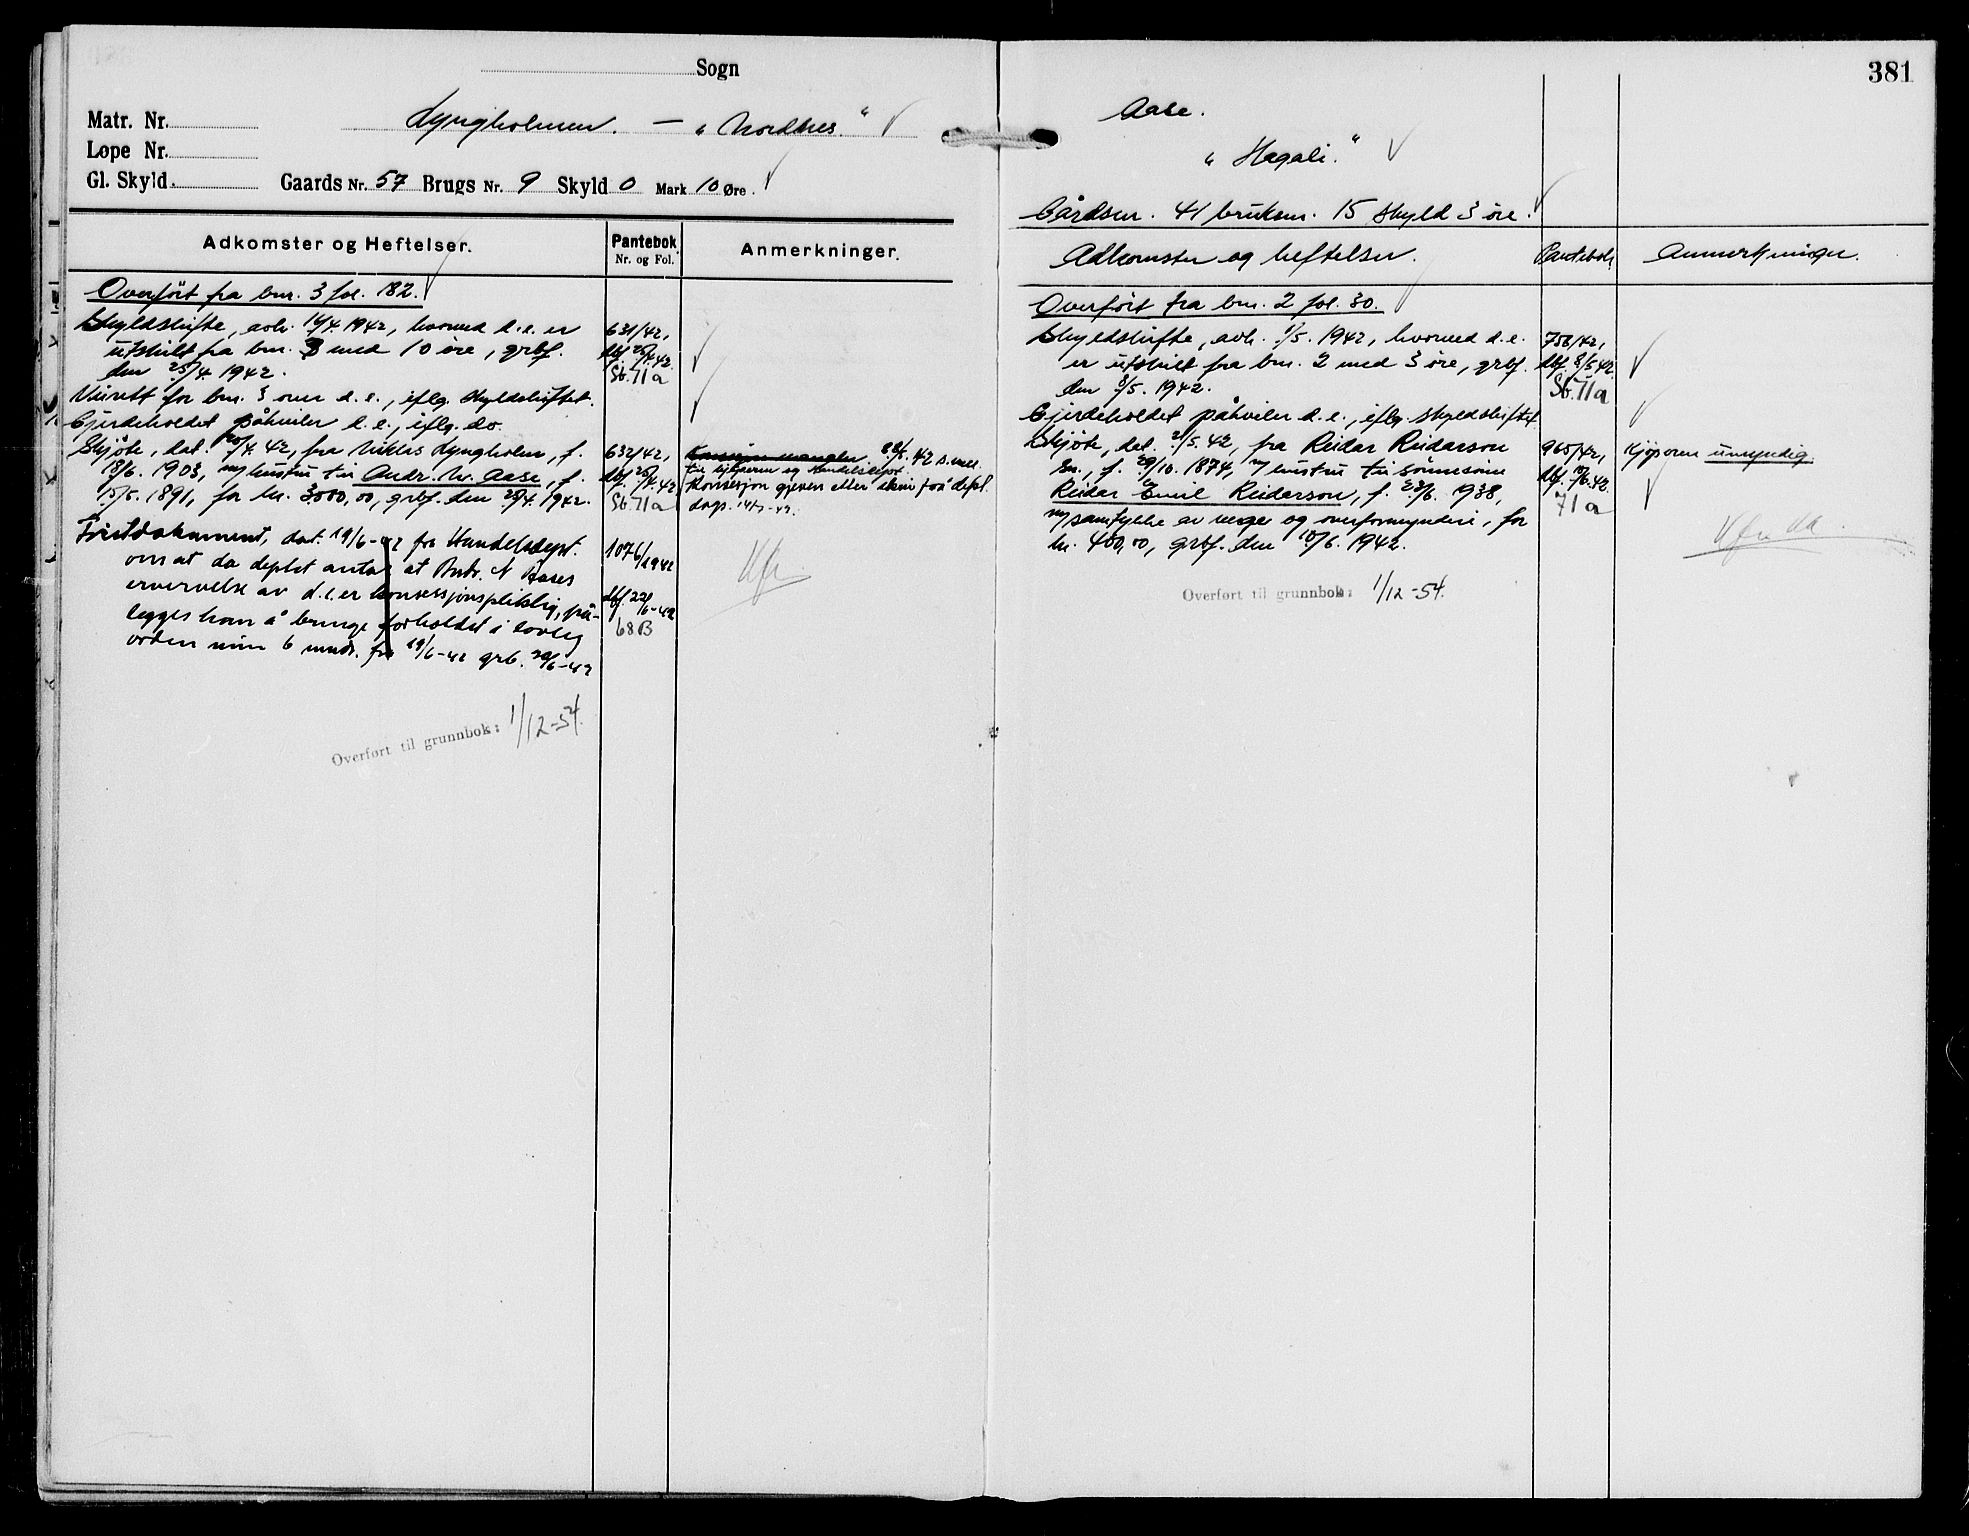 Sogn
Matr. Nr.
Lyngholmen. — „Nordnes.“
Lope Nr.
Gl. Skyld.
Gaards Nr. 57 Brugs Nr. 9 Skyld 0 Mark 10 Øre.
Adkomster og Heftelser.
Pantebok
Nr. og Fol.
Anmerkninger.
Overført fra bnr. 3 fol. 182.
Skyldskifte, avh. 14/4. 1942, hvorved d.e. er
utskilt fra bnr. 3 med 10 øre, grbf.
den 25/4. 1942.
631/42,
dbf. 25/4.42.
Sb. 71a
Veirett for bnr. 3 over d.e., iflg. skyldskiftet.
Gjerdeholdet påhviler d.e., iflg. do.
Skjöte, dat. 20/4. 42, fra Nikles Lyngholm, f.
18/6. 1903, m/hustru til Andr. N. Aase, f.
15/5. 1891, for kr. 3000,00, grbf. den 25/4. 1942.
632/42,
dbf. 25/4.42.
Sb. 71a
Konsesjon mangler. 42 s.
til kjøperen og Handelsdept.
Konsesjon gjeven etter skriv frå dept.
dags.
Fristdokument, dat. 19/6-42 fra Handelsdept.
om at da deptet antar at Andr. N Aases
ervervelse av d.e. er konsesjonspliktig, på-
legges ham å bringe forholdet i lovlig
orden innen 6 mndr. fra 19/6-42 grb. 22/6-42
1076/1942
dbf. 22/6-42
68B
Overført til grunnbok: 1/12-54.
381
Aase.
„Hagali.“
Gårdsnr. 41 bruksnr. 15 skyld 3 øre.
Adkomster og heftelser.
Pantebok
Anmerkninger.
Overført fra bnr. 2 fol. 30.
Skyldskifte, avh. 1/5. 1942, hvorved d.e.
er utskilt fra bnr. 2 med 3 øre, grbf.
den 8/5. 1942.
758/42,
dbf. 8/5 42.
Sb. 71a
Gjerdeholdet påhviler d.e., iflg. skyldskiftet.
Skjöte, dat. 2/5. 42, fra Reidar Reidarson
sen., f. 29/10. 1874, m/hustru til sønnesønn
Reidar Emil Reidarson, f. 23/6. 1938,
m/samtykke av verge og overformynderi, for
kr. 400,00, grbf. den 10/6. 1942.
965/42,
dbf. 10/6.42.
71a
Kjøperen umyndig.
Overført til grunnbok: 1/12-54.